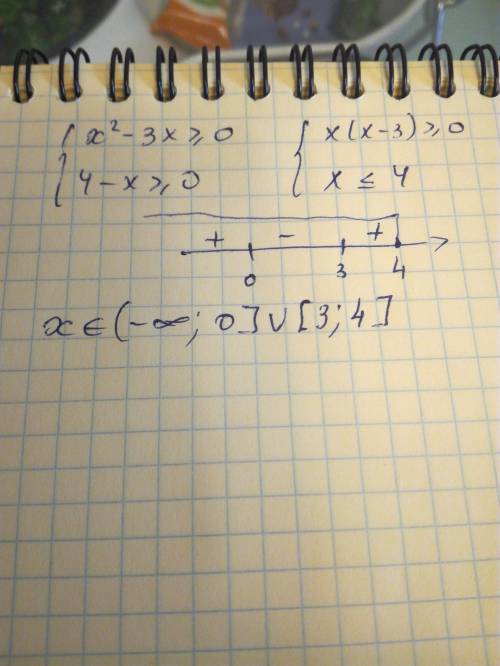 { x² - 3x ⩾ 0 { x(x-3) ⩾ 0
{ 4 - x ⩾ 0 { x ≤ 4
+ - +
0 3 4
x ∈ (-∞; 0] ∪ [3; 4]